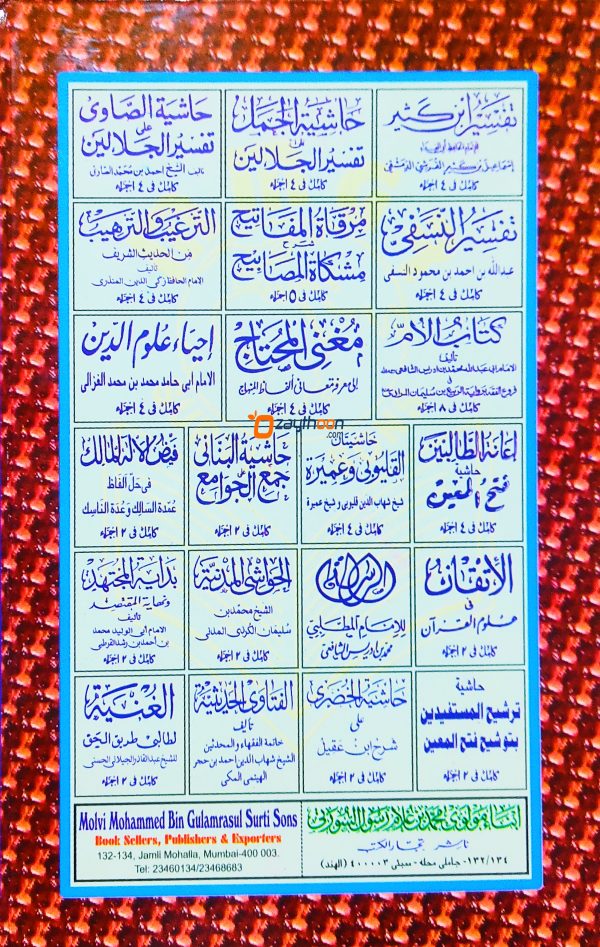 تفسير ابن كثير
للإمام الحافظ أبي الفداء
إسماعيل بن كثير القرشي الدمشقي
كامل في ٤ اجزاء
حاشية الجمل
على
تفسير الجلالين
كامل في ٤ اجزاء
حاشية الصاوى
على
تفسير الجلالين
تاليف الشيخ احمد بن محمد الصاوى
كامل في ٤ اجزاء
تفسير النسفى
عبدالله بن احمد بن محمود النسفى
كامل فى ٤ اجزاء
مرقاة المفاتيح
شرح
مشكاة المصابيح
كامل فى ٥ اجزاء
الترغيب والترهيب
من الحديث الشريف
تأليف
الامام الحافظ زكي الدين المنذرى
كامل فى ٤ اجزاء
كتاب الأم
تأليف
الامام ابى عبدالله محمد بن ادريس الشافعى
فى
فروع الفقه برواية الربيع بن سليمان المرادى
كامل فى ٨ اجزاء
مغنى المحتاج
إلى معرفة معانى ألفاظ المنهاج
كامل فى ٤ اجزاء
إحياء علوم الدين
الامام ابى حامد محمد بن محمد الغزالى
كامل فى ٤ اجزاء
zaythoon
.com
إعانة الطالبين
حاشية
فتح المعين
كامل فى ٤ اجزاء
حاشيتان
القليوبى وعميرة
شيخ شهاب الدين قليوبى و شيخ عميرة
كامل فى ٤ اجزاء
حاشية البنانى
على
جمع الجوامع
كامل فى ٢ اجزاء
فيض الإله المالك
فى حل الفاظ
عمدة السالك وعدة الناسك
كامل فى ٢ اجزاء
الأتقان
فى
علوم القرآن
كامل فى ٢ اجزاء
الرسالة
للإمام المطلبي
محمد بن ادريس الشافعى
الحواشى المدنية
الشيخ محمد بن
سليمان الكردى المدنى
كامل فى ٢ اجزاء
بداية المجتهد
ونهاية المقتصد
تأليف
الامام أبى الوليد محمد
بن أحمد بن رشد القرطبى
كامل فى ٢ اجزاء
حاشية
ترشيح المستفيدين
بتوشيح فتح المعين
كامل فى ٢ اجزاء
حاشية الخضرى
على
شرح ابن عقيل
كامل فى ٢ اجزاء
الفتاوى الحديثية
تأليف
خاتمة الفقهاء والمحدثين
الشيخ شهاب الدين احمد بن حجر
الهيتمى المكى
الغنية
لطالبى طريق الحق
للشيخ عبدالقادر الجيلانى الحسنى
كامل فى ٢ اجزاء
ابناء مولوى محمد بن غلام رسول السورتى
ناشر تجار الكتب
١٣٢/١٣٤- جاملى محله - ممبئى ٤٠٠٠٠٣ (الهند)
Molvi Mohammed Bin Gulamrasul Surti Sons
Book Sellers, Publishers & Exporters
132-134, Jamli Mohalla, Mumbai-400 003.
Tel: 23460134/23468683